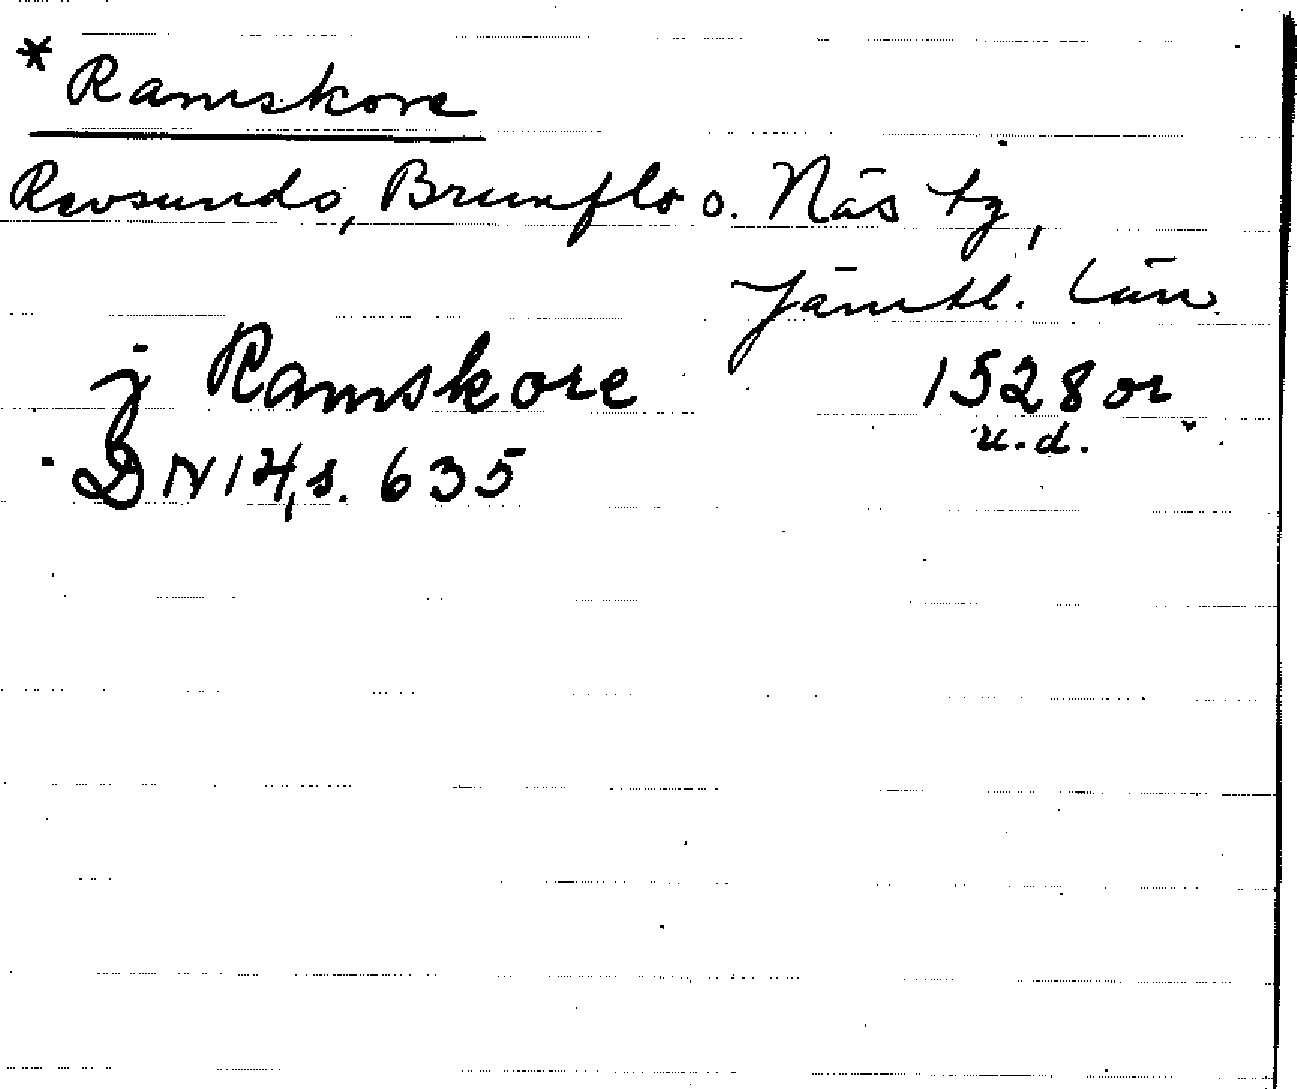 * Ramskore
Revsunds, Brunflo o. Näs tg,
Jämtl. län
j Ramskore 1528 or
u.d.
DN 14, s. 635